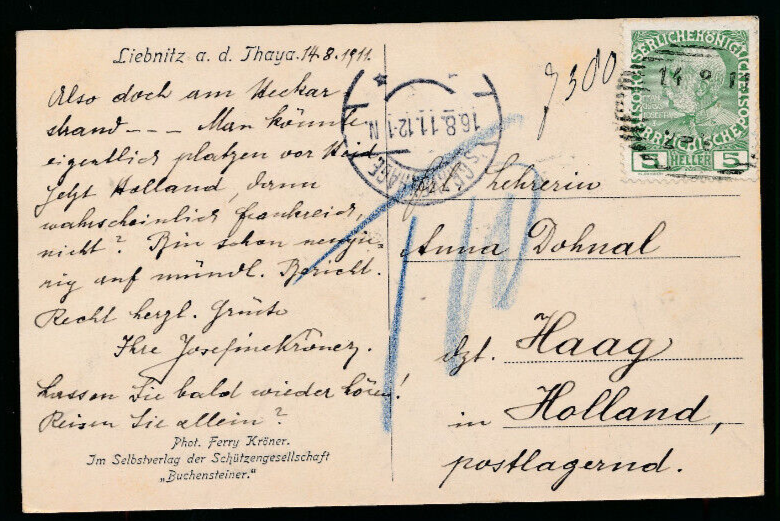 Liebnitz a. d. Thaya. 14.8.1911.
Also doch am Neckar-
strand --- Man könnte
eigentlich platzen vor Neid
Jetzt Holland, dann
wahrscheinlich Frankreich,
nicht? Bin schon neugie-
rig auf mündl. Bericht.
Recht herzl. Grüße
Ihre Josefine Kröner.
Lassen Sie bald wieder hören!
Reisen Sie allein?
Phot. Ferry Kröner.
Im Selbstverlag der Schützengesellschaft
„Buchensteiner."
16.8.11.12-1N
'S GRAVENHAGE
14 8 11
5 HELLER 5
Lehrerin
Anna Dohnal
dzt. Haag
in Holland,
postlagernd.
10